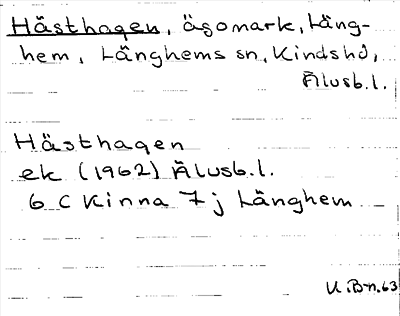 Hästhagen, ägomark, Läng-
hem, Länghems sn, Kinds hd,
Älvsb. l.
Hästhagen
ek (1962) Älvsb. l.
6 C Kinna 7 j Länghem
U. Bn. 63